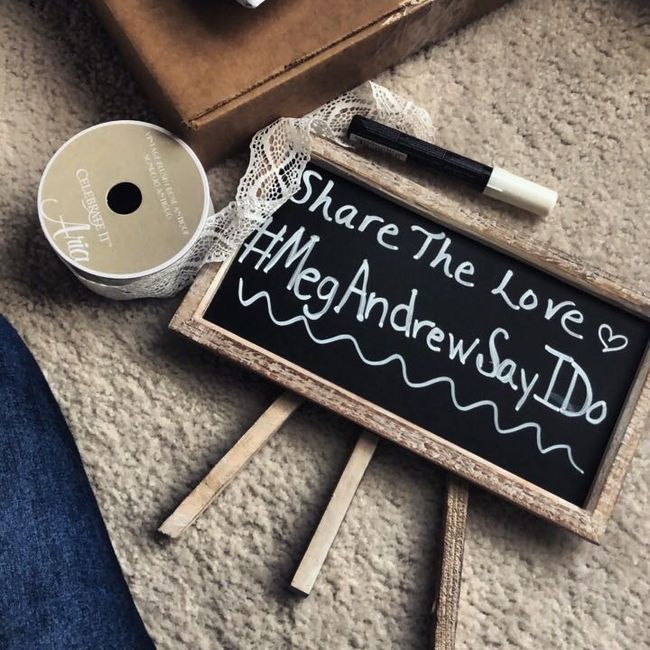 Share The Love
#MegAndrewSayIDo
CELEBRATE IT
Aria